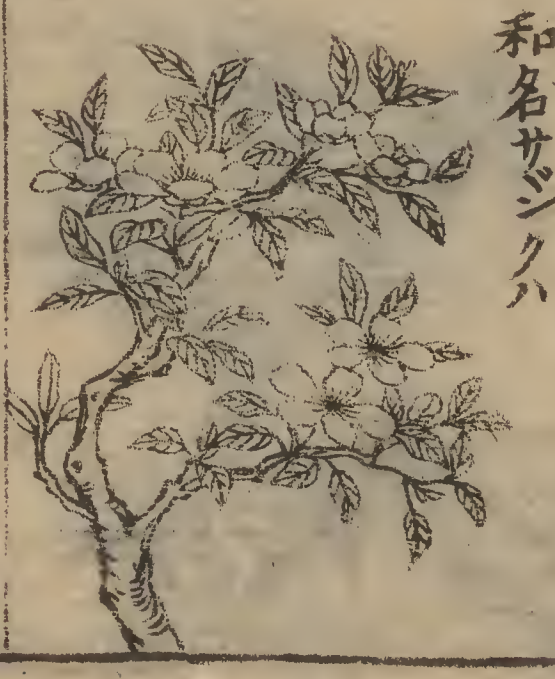 和名サジクハ